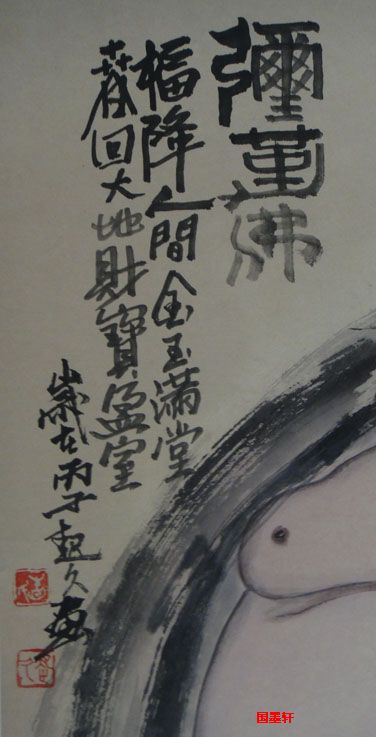 彌董佛
福降人間金玉滿堂
春回大地財寶盈室
歲在丙子起久画
国墨轩